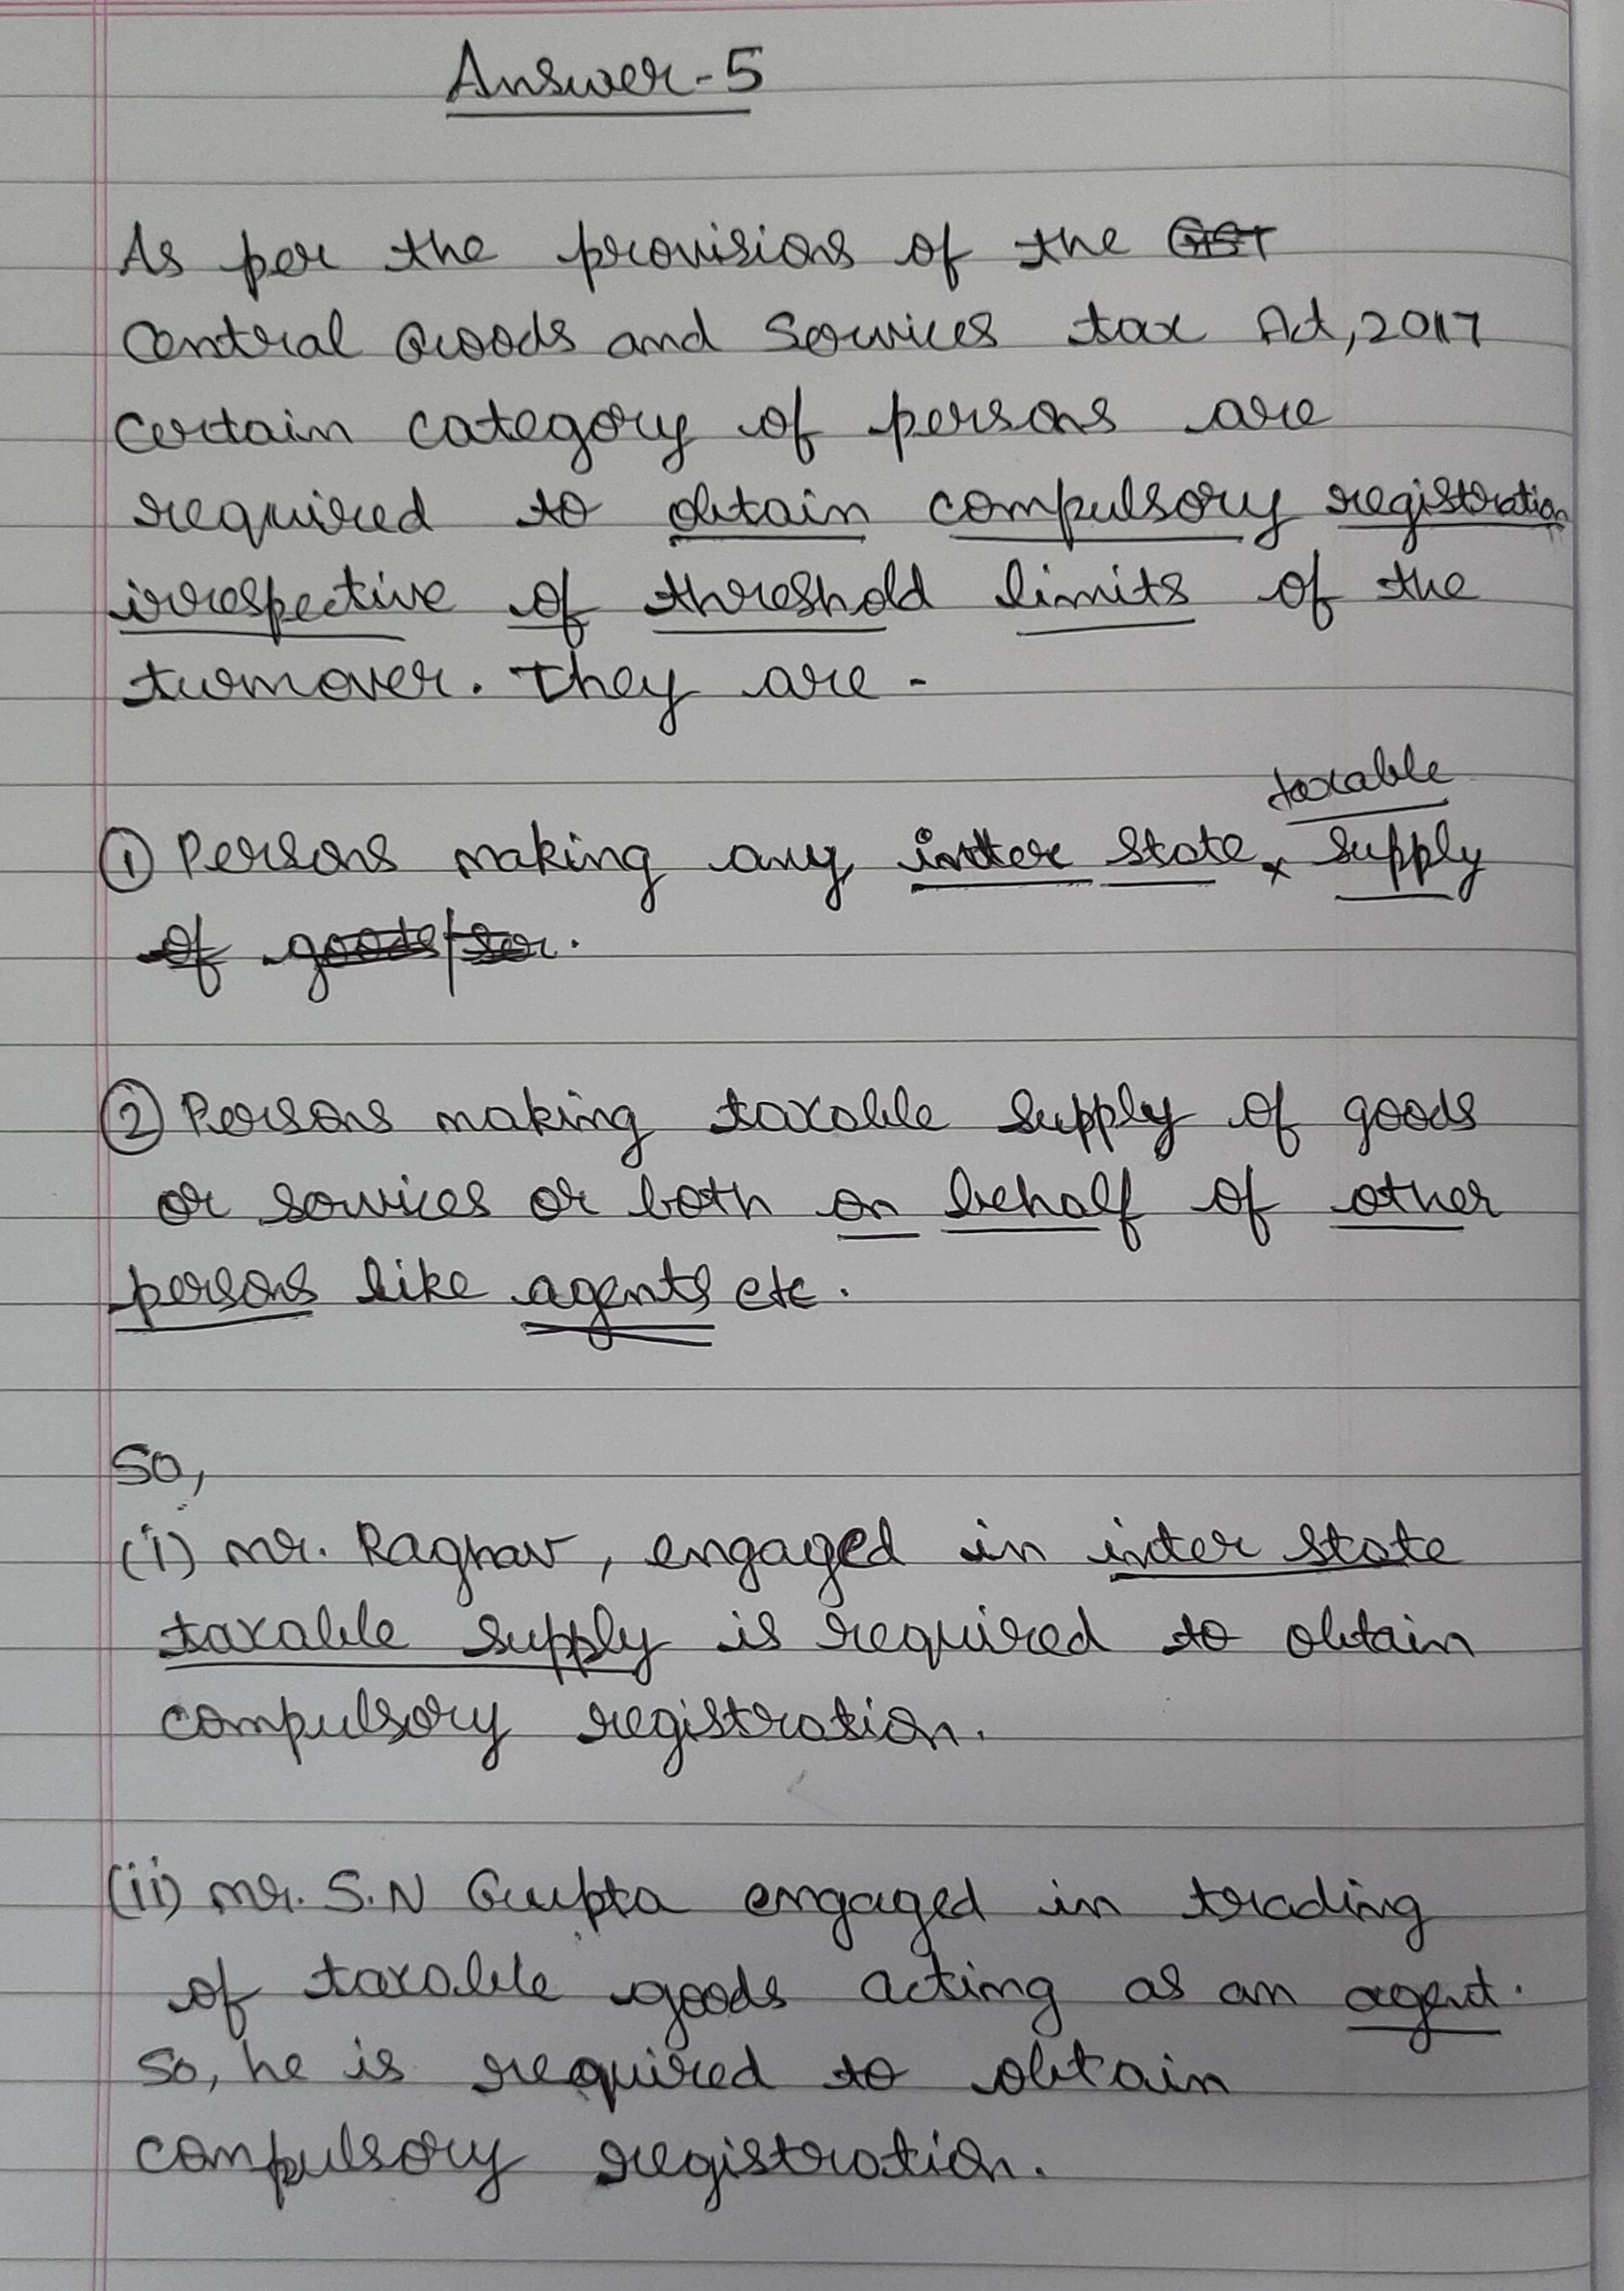 Answer-5
As per the provisions of the GST
Central Goods and Services tax Act, 2017
Certain category of persons are
required to obtain compulsory registration
irrespective of threshold limits of the
turnover. They are -
taxable
① Persons making any inter state x supply
of goods/ser.
② Persons making taxable supply of goods
or services or both on behalf of other
persons like agents etc.
So,
(i) Mr. Raghav, engaged in inter state
taxable supply is required to obtain
compulsory registration.
(ii) Mr. S.N Gupta engaged in trading
of taxable goods acting as an agent.
So, he is required to obtain
compulsory registration.